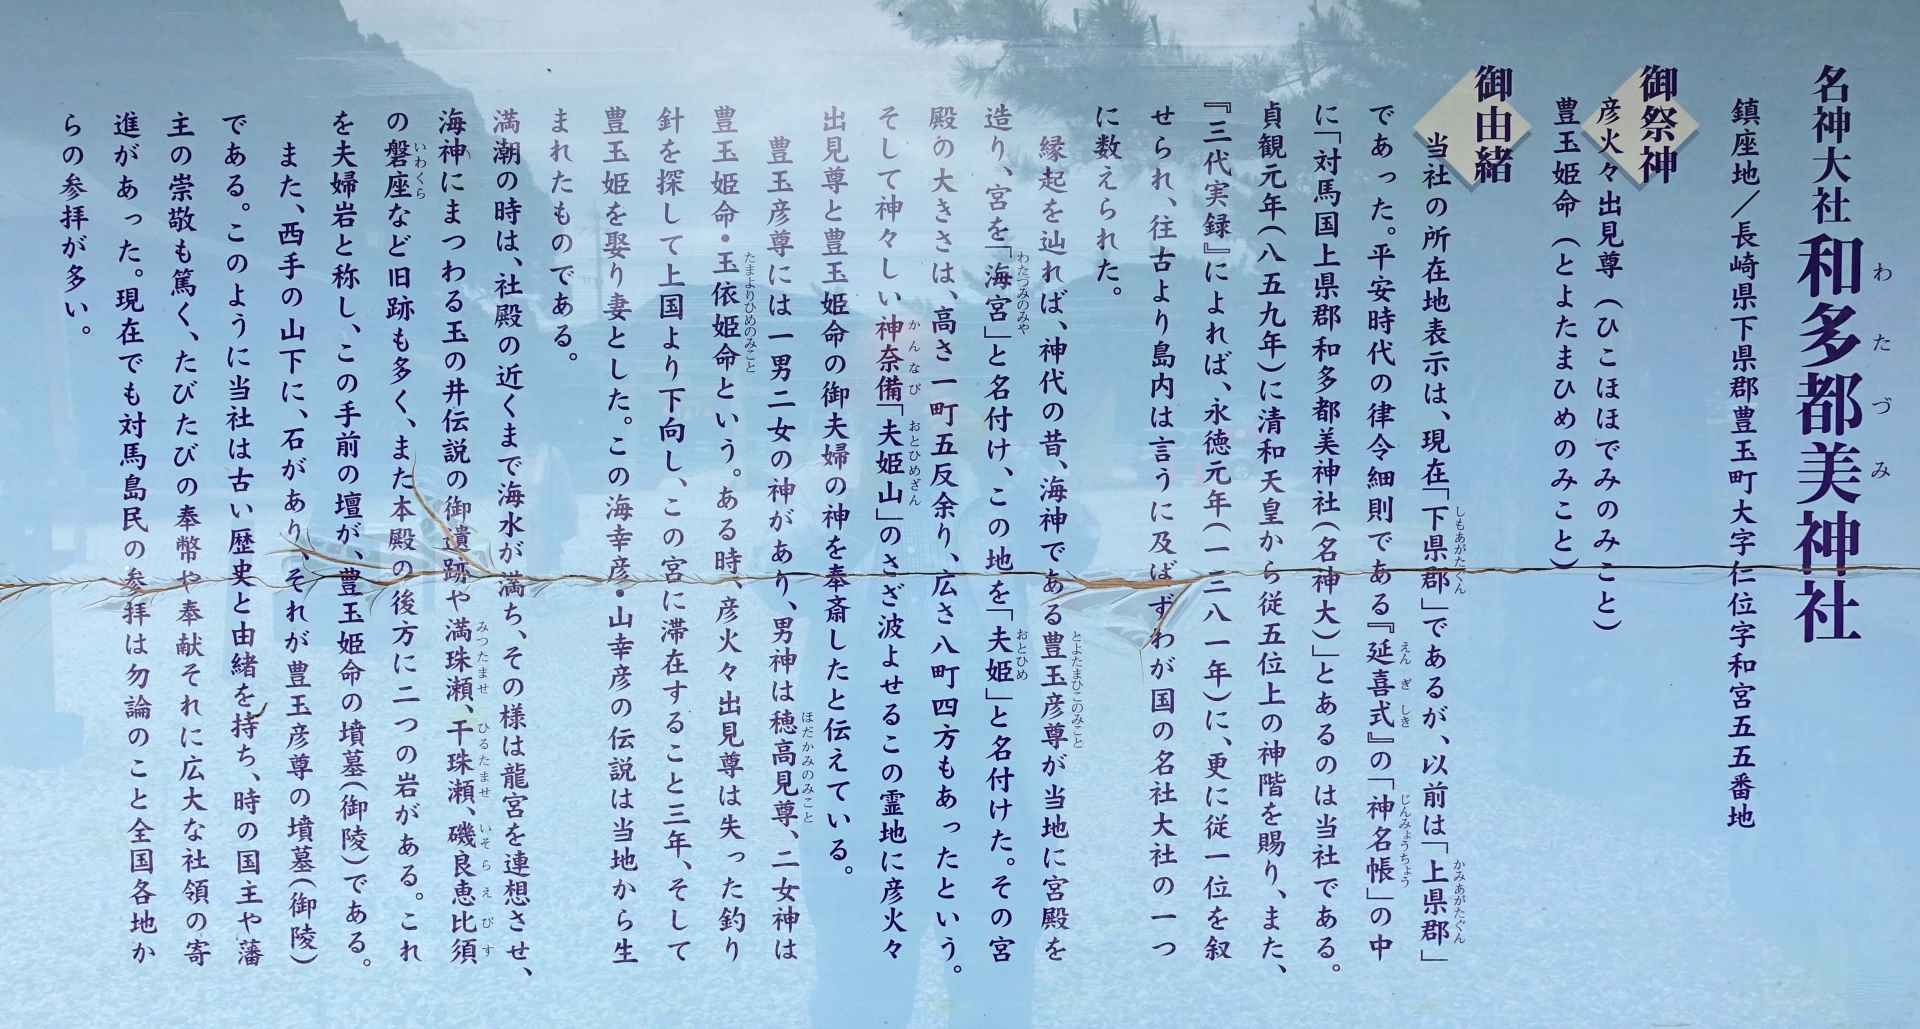 名神大社 和多都美神社
わたづみ
鎮座地／長崎県下県郡豊玉町大字仁位字和宮五五番地
御祭神
彦火々出見尊（ひこほほでみのみこと）
豊玉姫命（とよたまひめのみこと）
御由緒
当社の所在地表示は、現在「下県郡」であるが、以前は「上県郡」
しもあがたぐん かみあがたぐん
であった。平安時代の律令細則である『延喜式』の「神名帳」の中
えんぎしき じんみょうちょう
に「対馬国上県郡和多都美神社（名神大）」とあるのは当社である。
貞観元年（八五九年）に清和天皇から従五位上の神階を賜り、また、
『三代実録』によれば、永徳元年（一三八一年）に、更に従一位を叙
せられ、往古より島内は言うに及ばずわが国の名社大社の一つ
に数えられた。
縁起を辿れば、神代の昔、海神である豊玉彦尊が当地に宮殿を
とよたまひこのみこと
造り、宮を「海宮」と名付け、この地を「夫姫」と名付けた。その宮
わたづみのみや おとひめ
殿の大きさは、高さ一町五反余り、広さ八町四方もあったという。
そして神々しい神奈備「夫姫山」のさざ波よせるこの霊地に彦火々
かんなび おとひめざん
出見尊と豊玉姫命の御夫婦の神を奉斎したと伝えている。
豊玉彦尊には一男二女の神があり、男神は穂高見尊、二女神は
ほだかみのみこと
豊玉姫命・玉依姫命という。ある時、彦火々出見尊は失った釣り
たまよりひめのみこと
針を探して上国より下向し、この宮に滞在すること三年、そして
豊玉姫を娶り妻とした。この海幸彦・山幸彦の伝説は当地から生
まれたものである。
満潮の時は、社殿の近くまで海水が満ち、その様は龍宮を連想させ、
海神にまつわる玉の井伝説の御遺跡や満珠瀬、干珠瀬、磯良恵比須
みつたませ ひるたませ いそらえびす
の磐座など旧跡も多く、また本殿の後方に二つの岩がある。これ
いわくら
を夫婦岩と称し、この手前の壇が、豊玉姫命の墳墓（御陵）である。
また、西手の山下に、石があり、それが豊玉彦尊の墳墓（御陵）
である。このように当社は古い歴史と由緒を持ち、時の国主や藩
主の崇敬も篤く、たびたびの奉幣や奉献それに広大な社領の寄
進があった。現在でも対馬島民の参拝は勿論のこと全国各地か
らの参拝が多い。